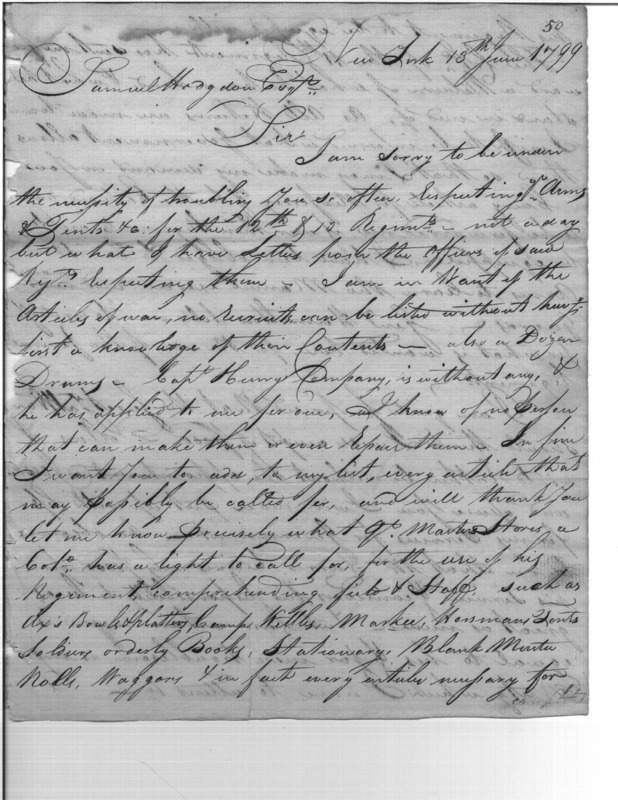 50
New York 13th June 1799
Samuel Hodgdon Esqr.
Sir
I am sorry to be under
the necessity of troubling You so often, Respecting ye. Arms
& Tents &c for the 12th & 13 Regimts. - not a day
but what I have Letters from the Officers of said
Regts. Respecting them - I am in Want of the
Articles of war, no Recruits can be listed without havg.
first a knowledge of their Contents - also a Dozen
Drums - Capt. Henry Company, is without any, &
he has applied to me for one, & I know of no Person
that can make them or even Repair them - In fine
I want You to add, to my list, every article that
may possibly be called for, and will thank You
let me know precisely what Qr. Master Stores, a
Colo. has a right to call for, for the use of his
Regiment, comprehending field & Staff, such as
Ax's Bowls & platters, Camp Kettles, Markees, Horsmans Tents
Soldiers orderly Books, Stationary, Blank Muster
Rolls, Waggons & in fact every article necessary for